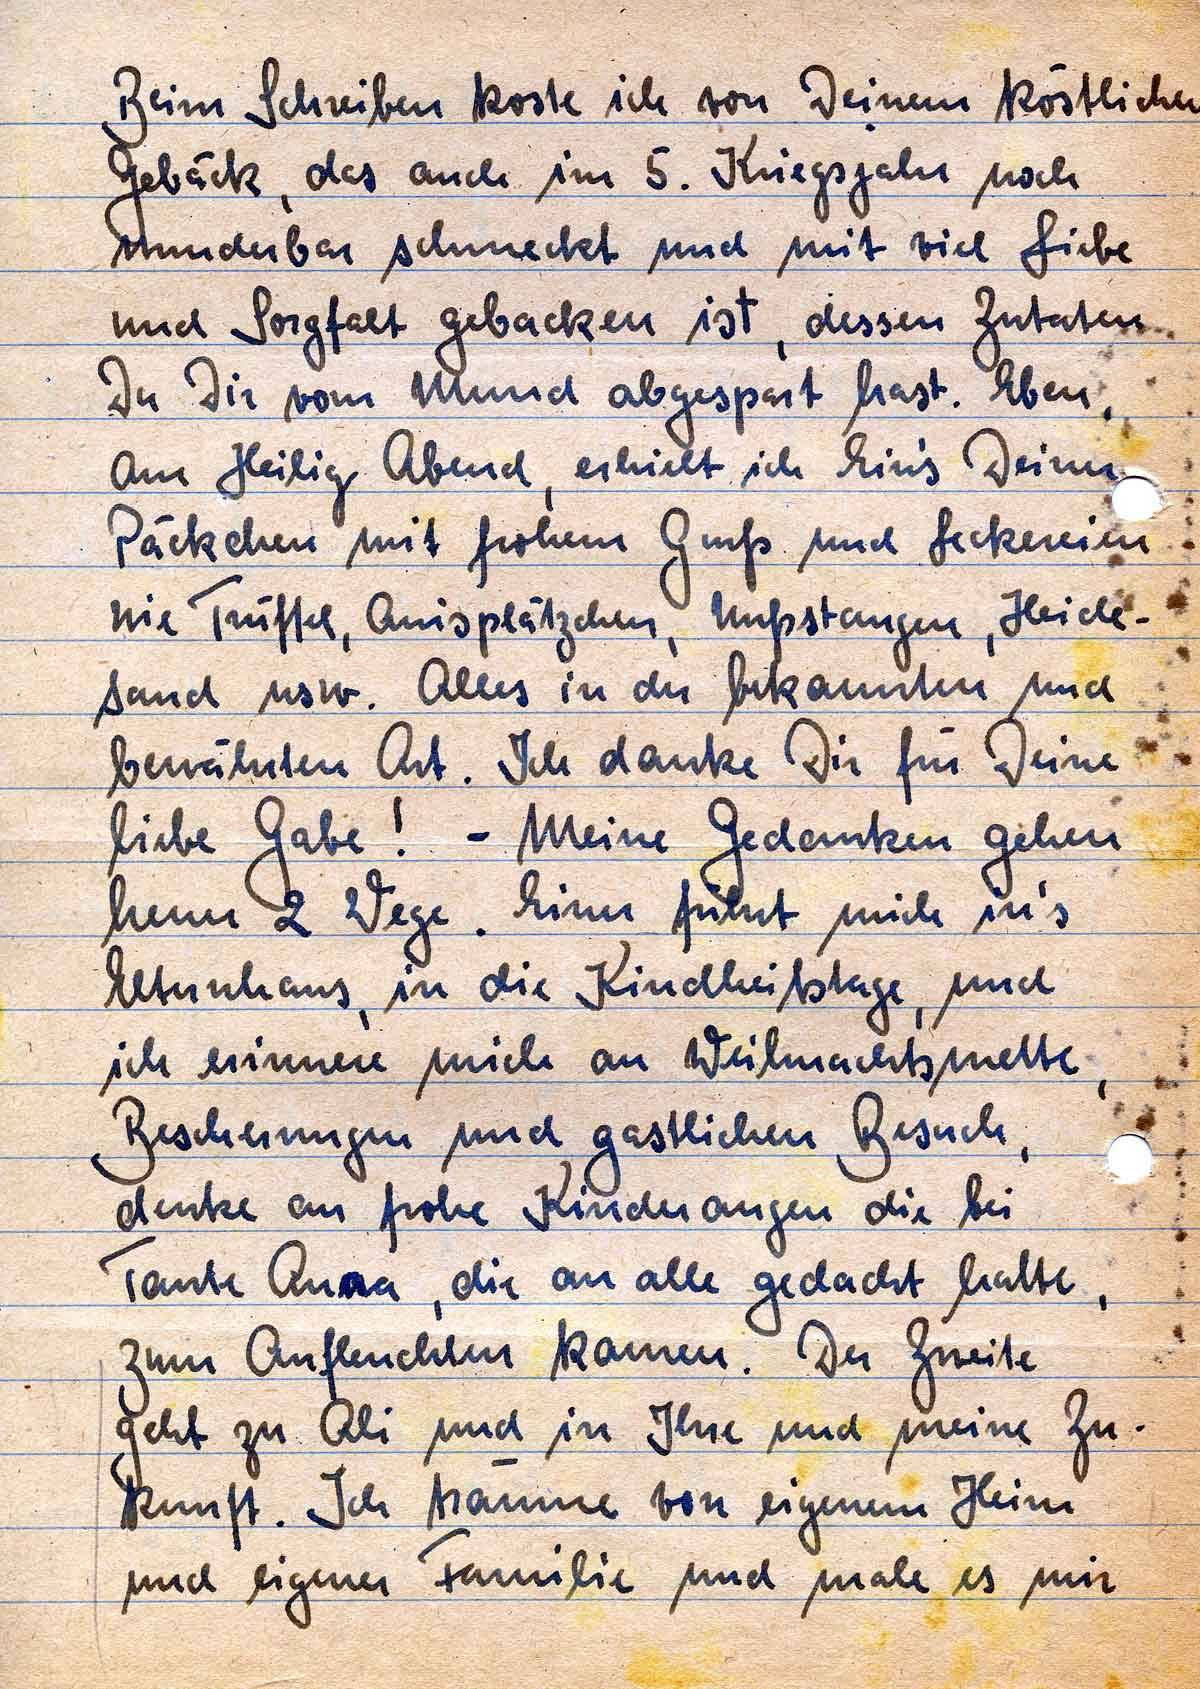 Beim Schreiben koste ich von Deinem köstlichen
Gebäck, das auch im 5. Kriegsjahr noch
wunderbar schmeckt und mit viel Liebe
und Sorgfalt gebacken ist, dessen Zutaten
Du Dir vom Mund abgespart hast. Eben,
am Heilig Abend, erhielt ich Eins Deiner
Päckchen mit frohem Gruß und Leckereien
wie Trüffel, Anisplätzchen, Nußstangen, Heide-
sand usw. Alles in der bekannten und
bewährten Art. Ich danke Dir für Deine
liebe Gabe! - Meine Gedanken gehen
heute 2 Wege. Einer führt mich in's
Elternhaus, in die Kindheitstage, und
ich erinnere mich an Weihnachtsmette,
Bescherungen und gastlichen Besuch,
denke an frohe Kinderaugen die bei
Tante Anna, die an alle gedacht hatte,
zum Aufleuchten kamen. Der Zweite
geht zu Ali und in Ihre und meine Zu-
kunft. Ich träume von eigenem Heim
und eigener Familie und male es mir